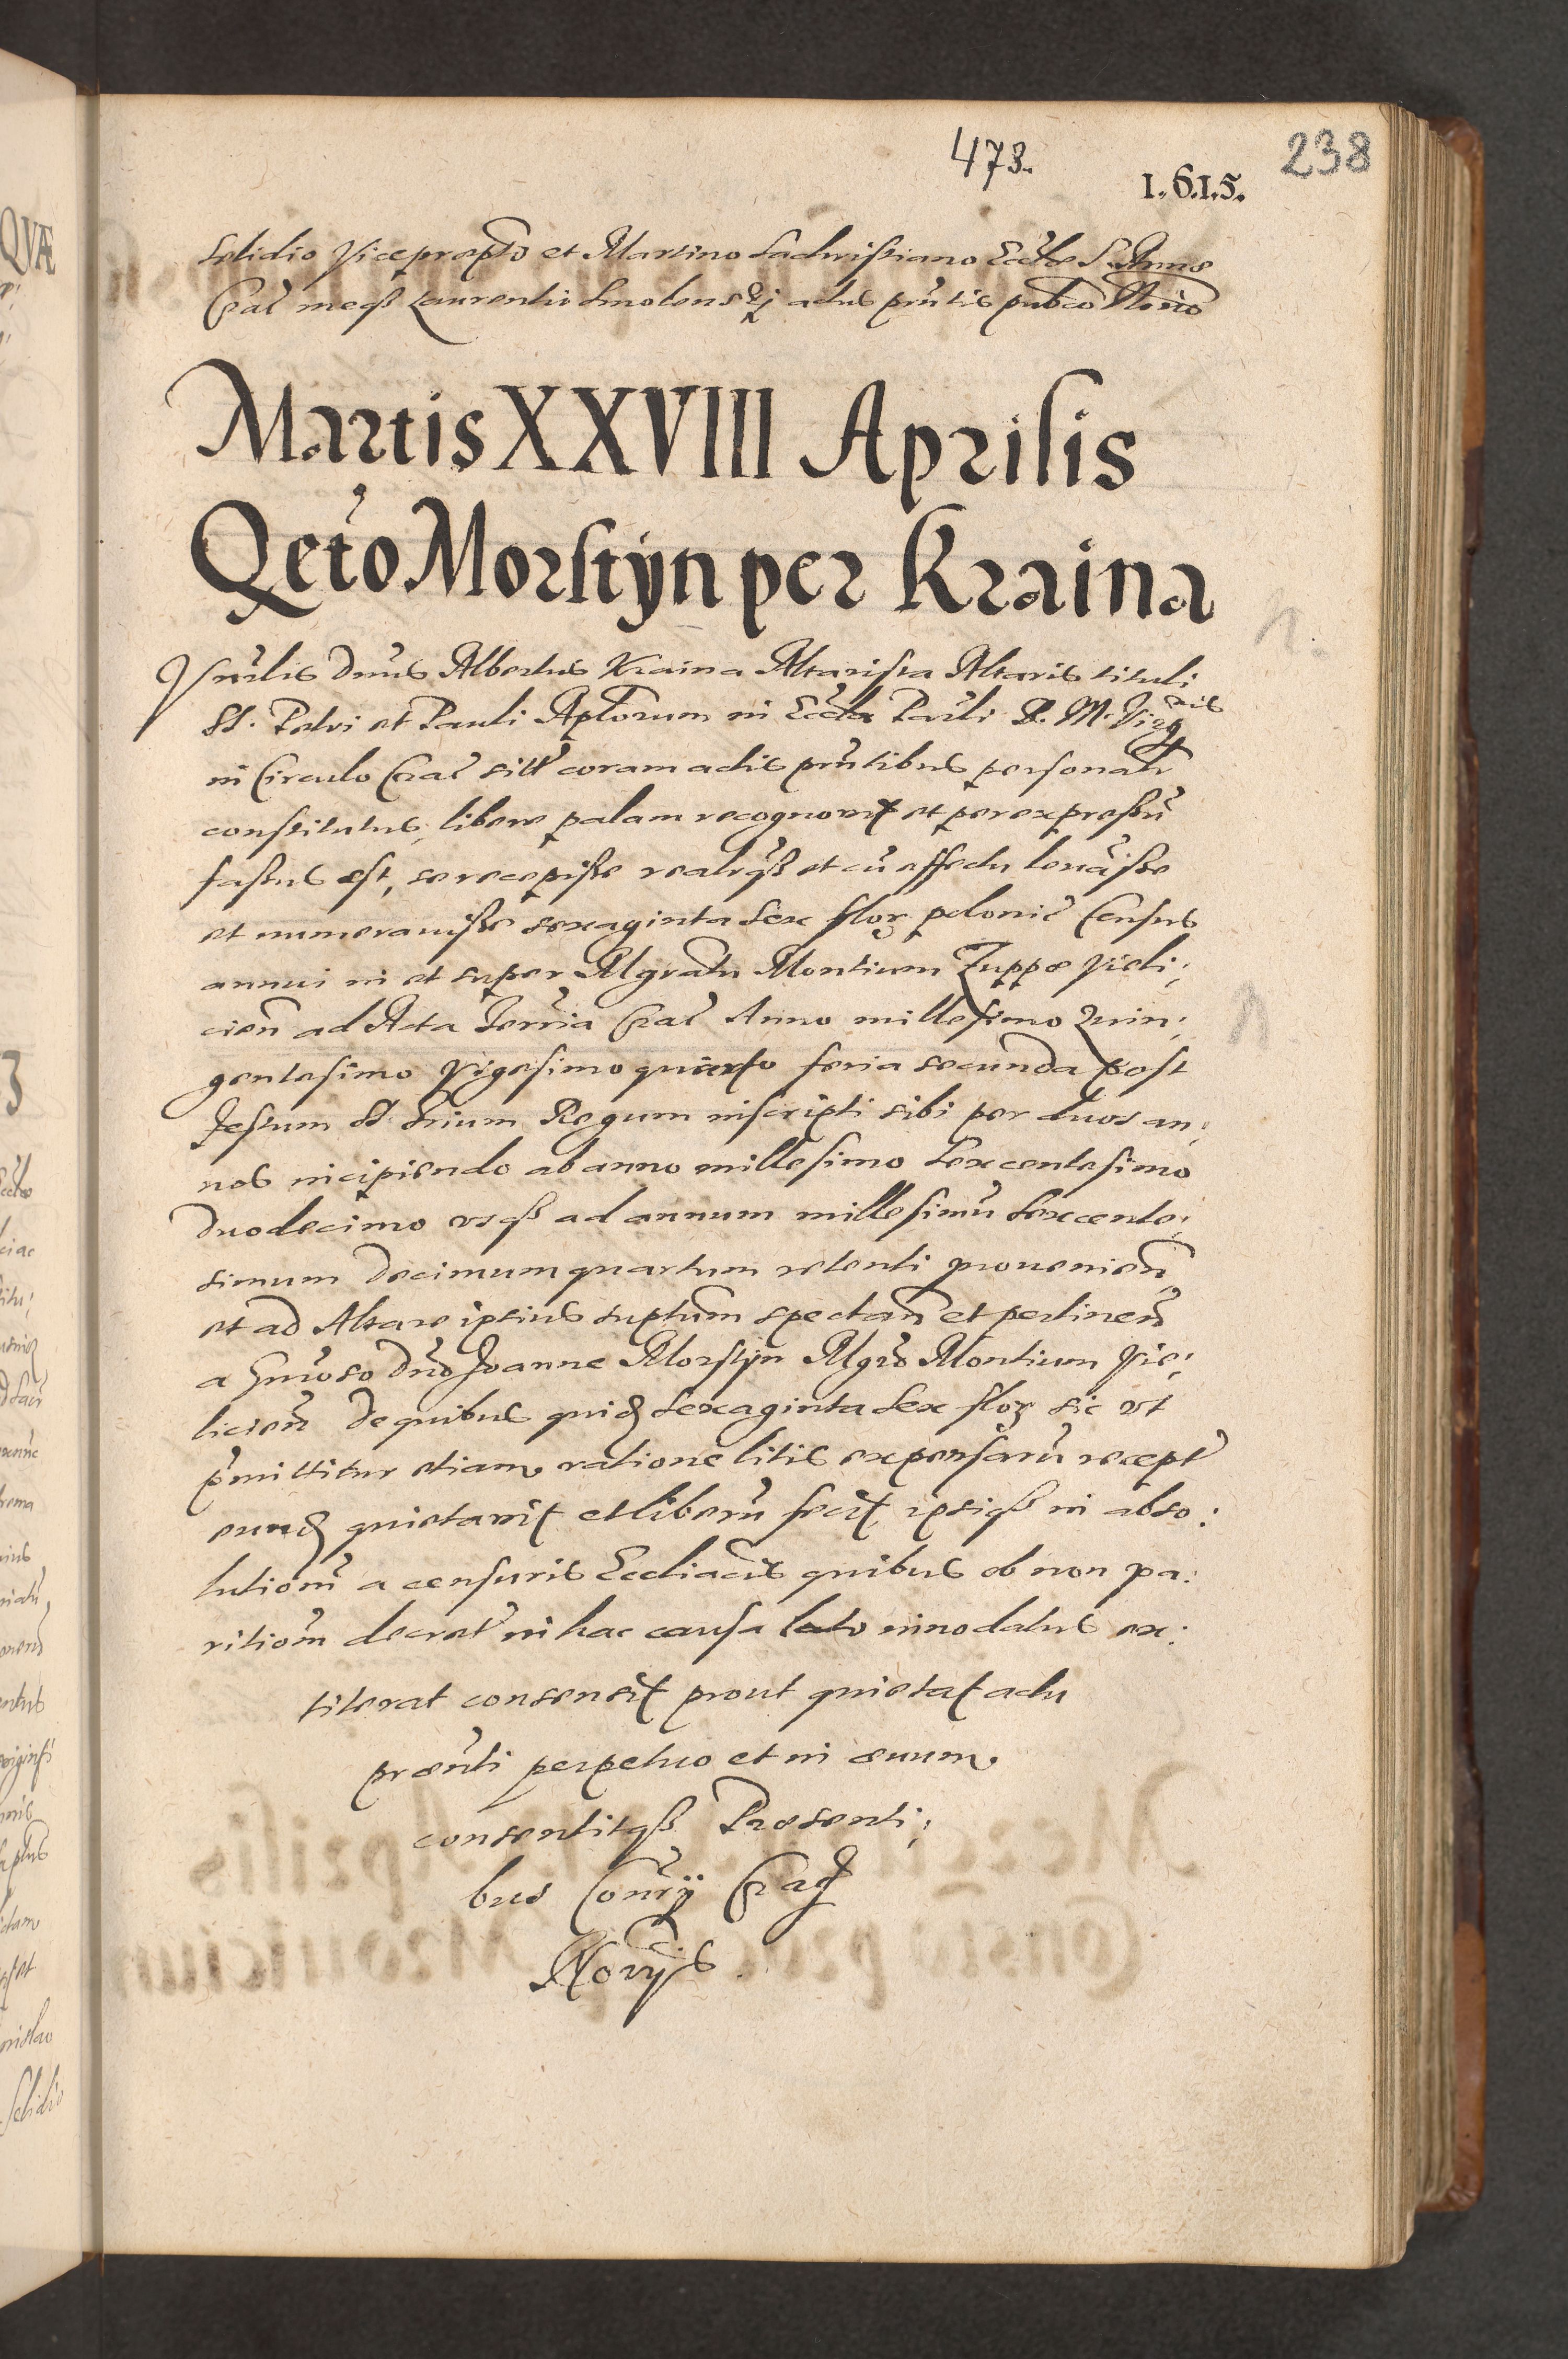 473.
238
1.6.1.5.
Solidio Vicepraepto et Martino Sachristiano Eccłae S. Annae
Crac̃ meqꝫ Laurentio Smolensky actus pñtis pubco Norio
Martis XXVIII Aprilis
Qeto Morstÿn per Kraina
Vñrlis Dñus Albertus Kraina Altarista Altaris tituli
SS. Petri et Pauli Aptorum in Eccła Parłi B. M. Virgnis
in Circulo Crac̃ siti coram actis pñtibus personalr
constitutus, libere palam recognovit et per expressũ
fassus est, se recepisse realrqꝫ et cũ effectu levasse
et numeravisse sexaginta sex flor polonic̃ Census
annui in et super Mgratu Montium Zuppae Vieli:
cieñ ad Acta Terria Crac̃ Anno millesimo Quin:
gentesimo vigesimo quarto feria secunda post
Festum SS. Trium Regum inscripti sibi per duos an:
nos incipiendo ab anno millesimo Sexcentesimo
duodecimo usqꝫ ad annum millesimũ Sexcente:
simum decimum quartum retenti provenieñ
et ad Altare ipsius suptum spectañ et pertineñ
a Gñroso Dño Joanne Morstÿn Mgro Montium Vie:
licieñ de quibus quidꝫ Sexaginta Sex flor sic ut
p̃mittitur etiam ratione litis expensarũ recept̃
eundꝫ quietavit et liberũ fecit, ipsiqꝫ in abso:
lutioñm a censuris Eccliacis quibus ob non pa:
ritioñm decret̃ in hac causa lato innodatus ex:
titerat consensit prout quietat actu
praeñti perpetuo et in aevum
consentitqꝫ Praesenti:
bus Coñrÿ Crac̃
Norÿs